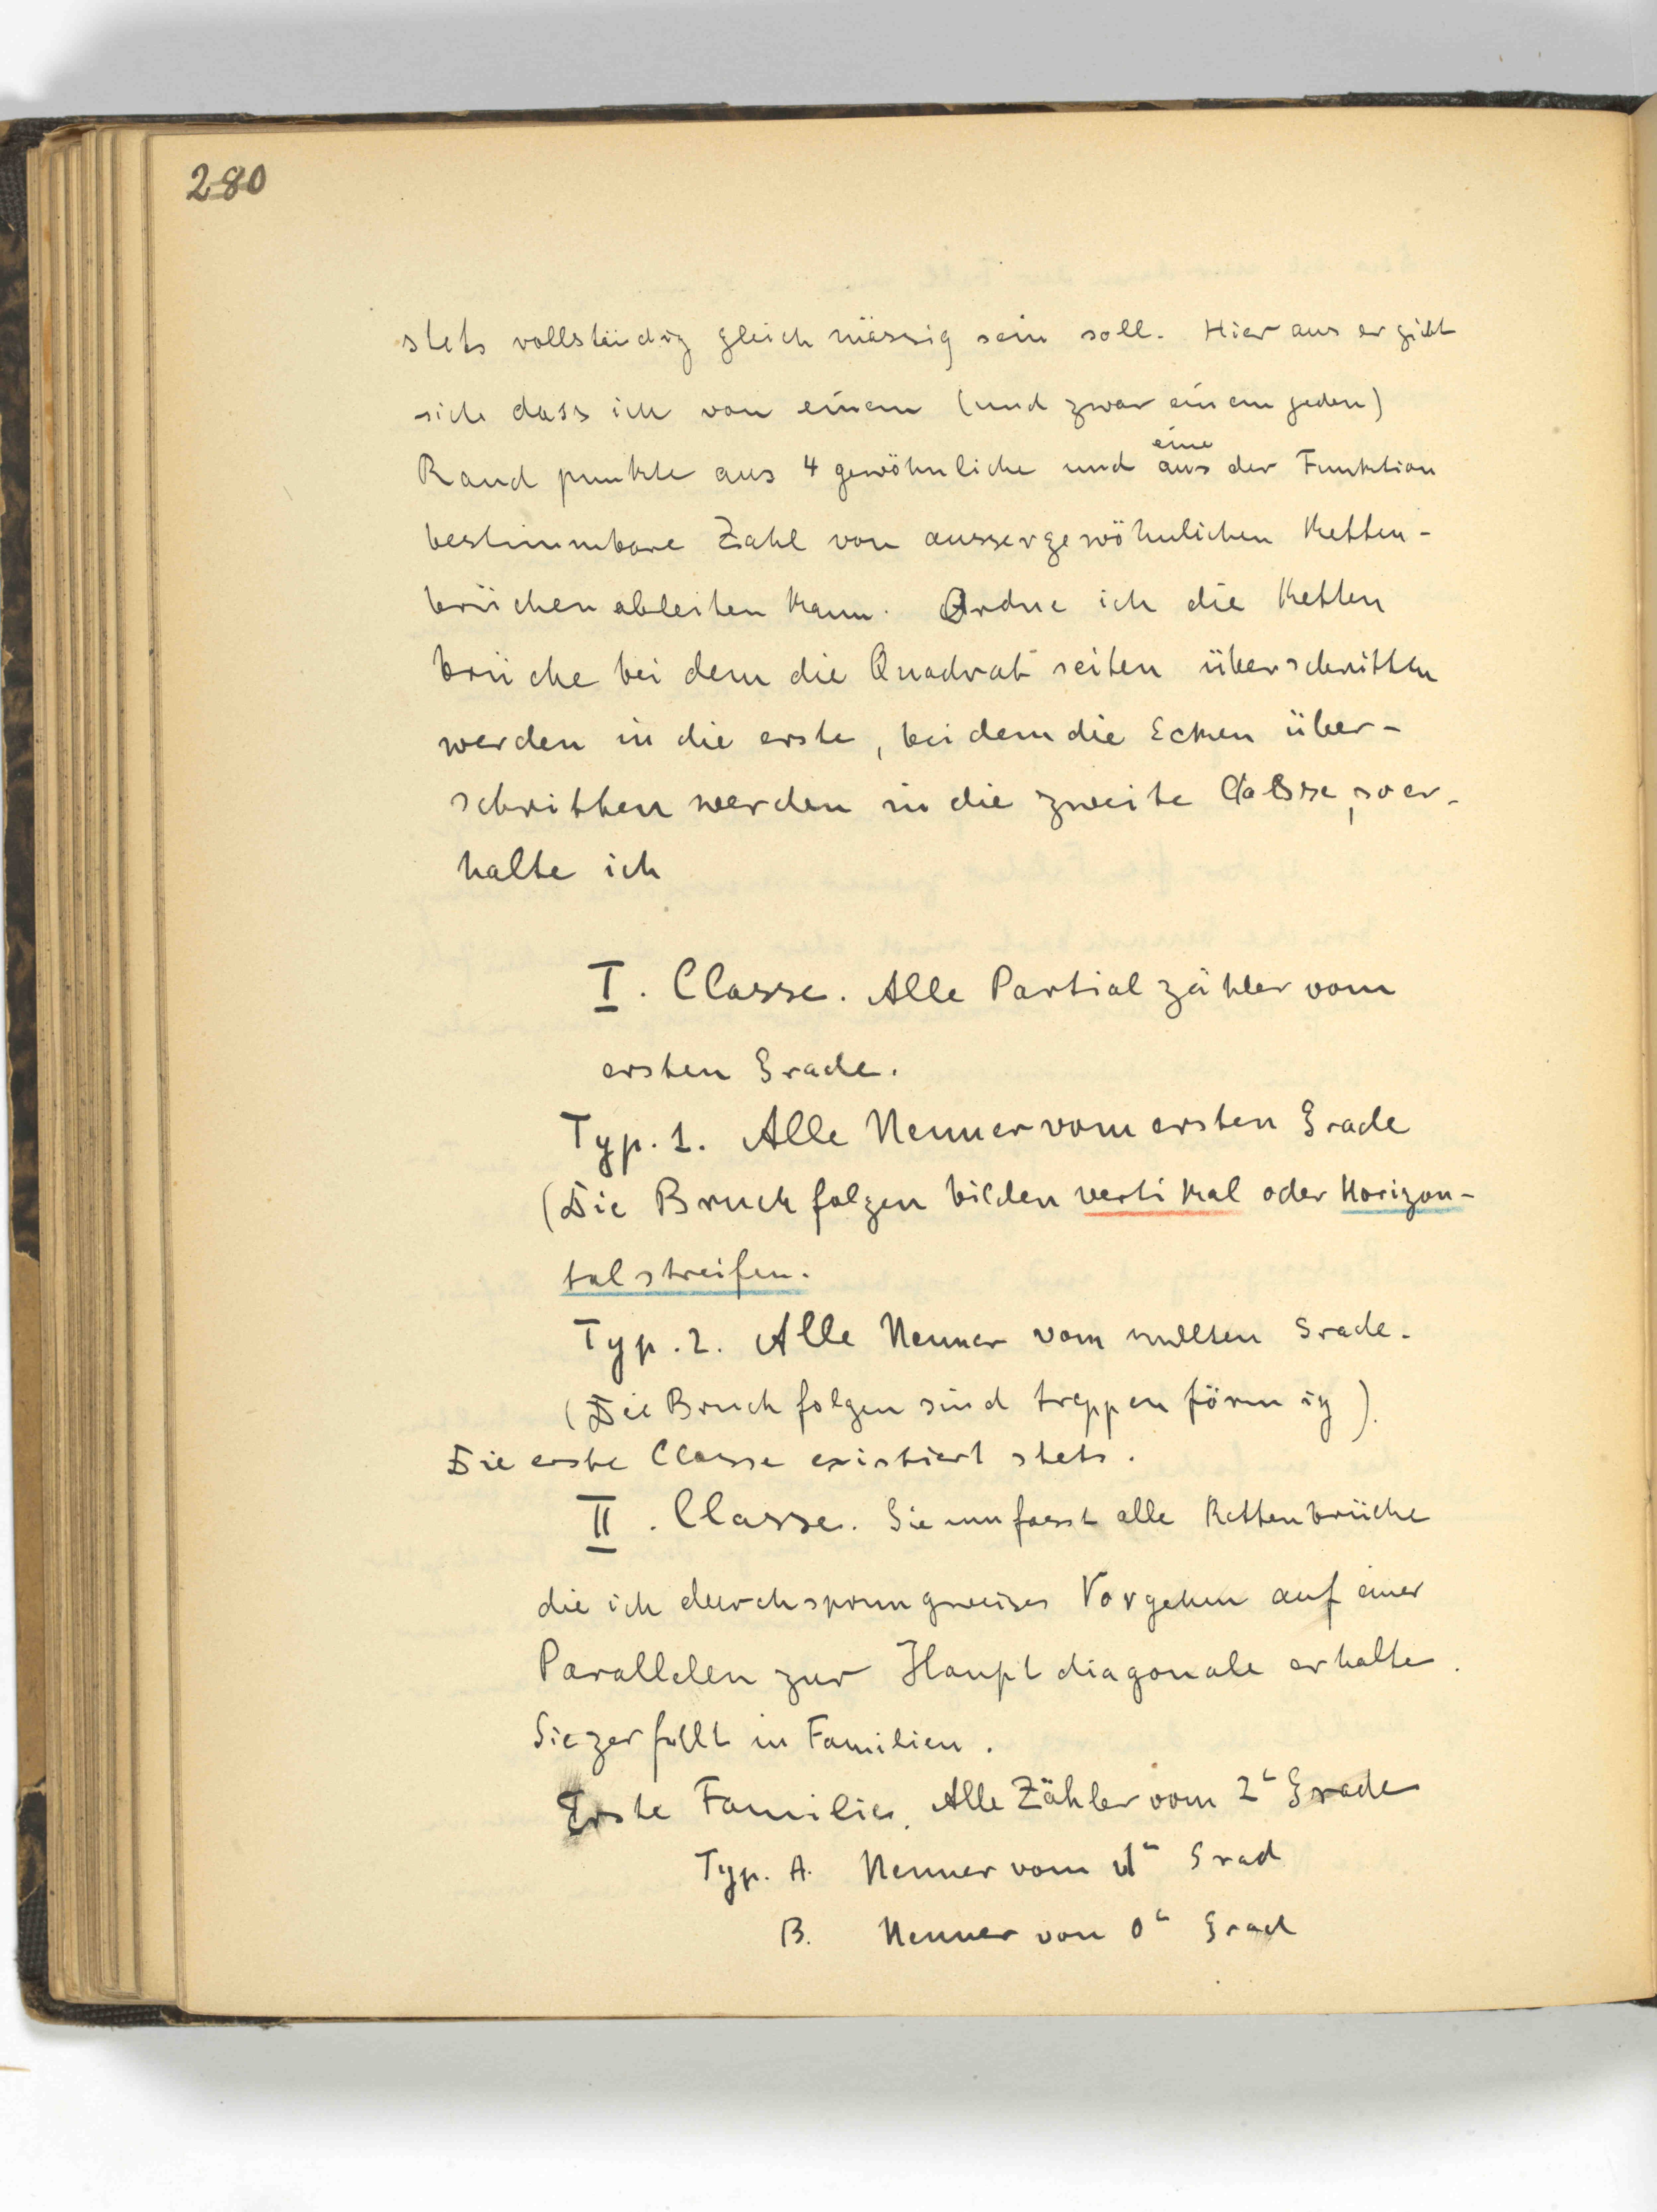 280
stets vollständig gleichmässig sein soll. Hieraus ergibt
sich dass ich von einem (und zwar einem jeden)
eine
Randpunkte aus 4 gewöhnliche und aus der Funktion
bestimmbare Zahl von aussergewöhnlichen Ketten-
brüchen ableiten kann. Ordne ich die Ketten
brüche bei dem die Quadratseiten überschritten
werden in die erste, bei dem die Ecken über-
schritten werden in die zweite Classe, so er-
halte ich
I. Classe. Alle Partialzähler vom
ersten Grade.
Typ. 1. Alle Nenner vom ersten Grade
(Die Bruchfolgen bilden vertikal oder Horizon-
talstreifen.
Typ. 2. Alle Nenner vom nullten Grade.
(Die Bruchfolgen sind treppenförmig).
Die erste Classe existiert stets.
II. Classe. Sie umfasst alle Kettenbrüche
die ich durch sprungweises Vorgehen auf einer
Parallelen zur Hauptdiagonale erhalte.
Sie zerfällt in Familien.
Erste Familie. Alle Zähler vom 2t Grade
Typ. A. Nenner vom 1t Grad
B. Nenner von 0t Grad